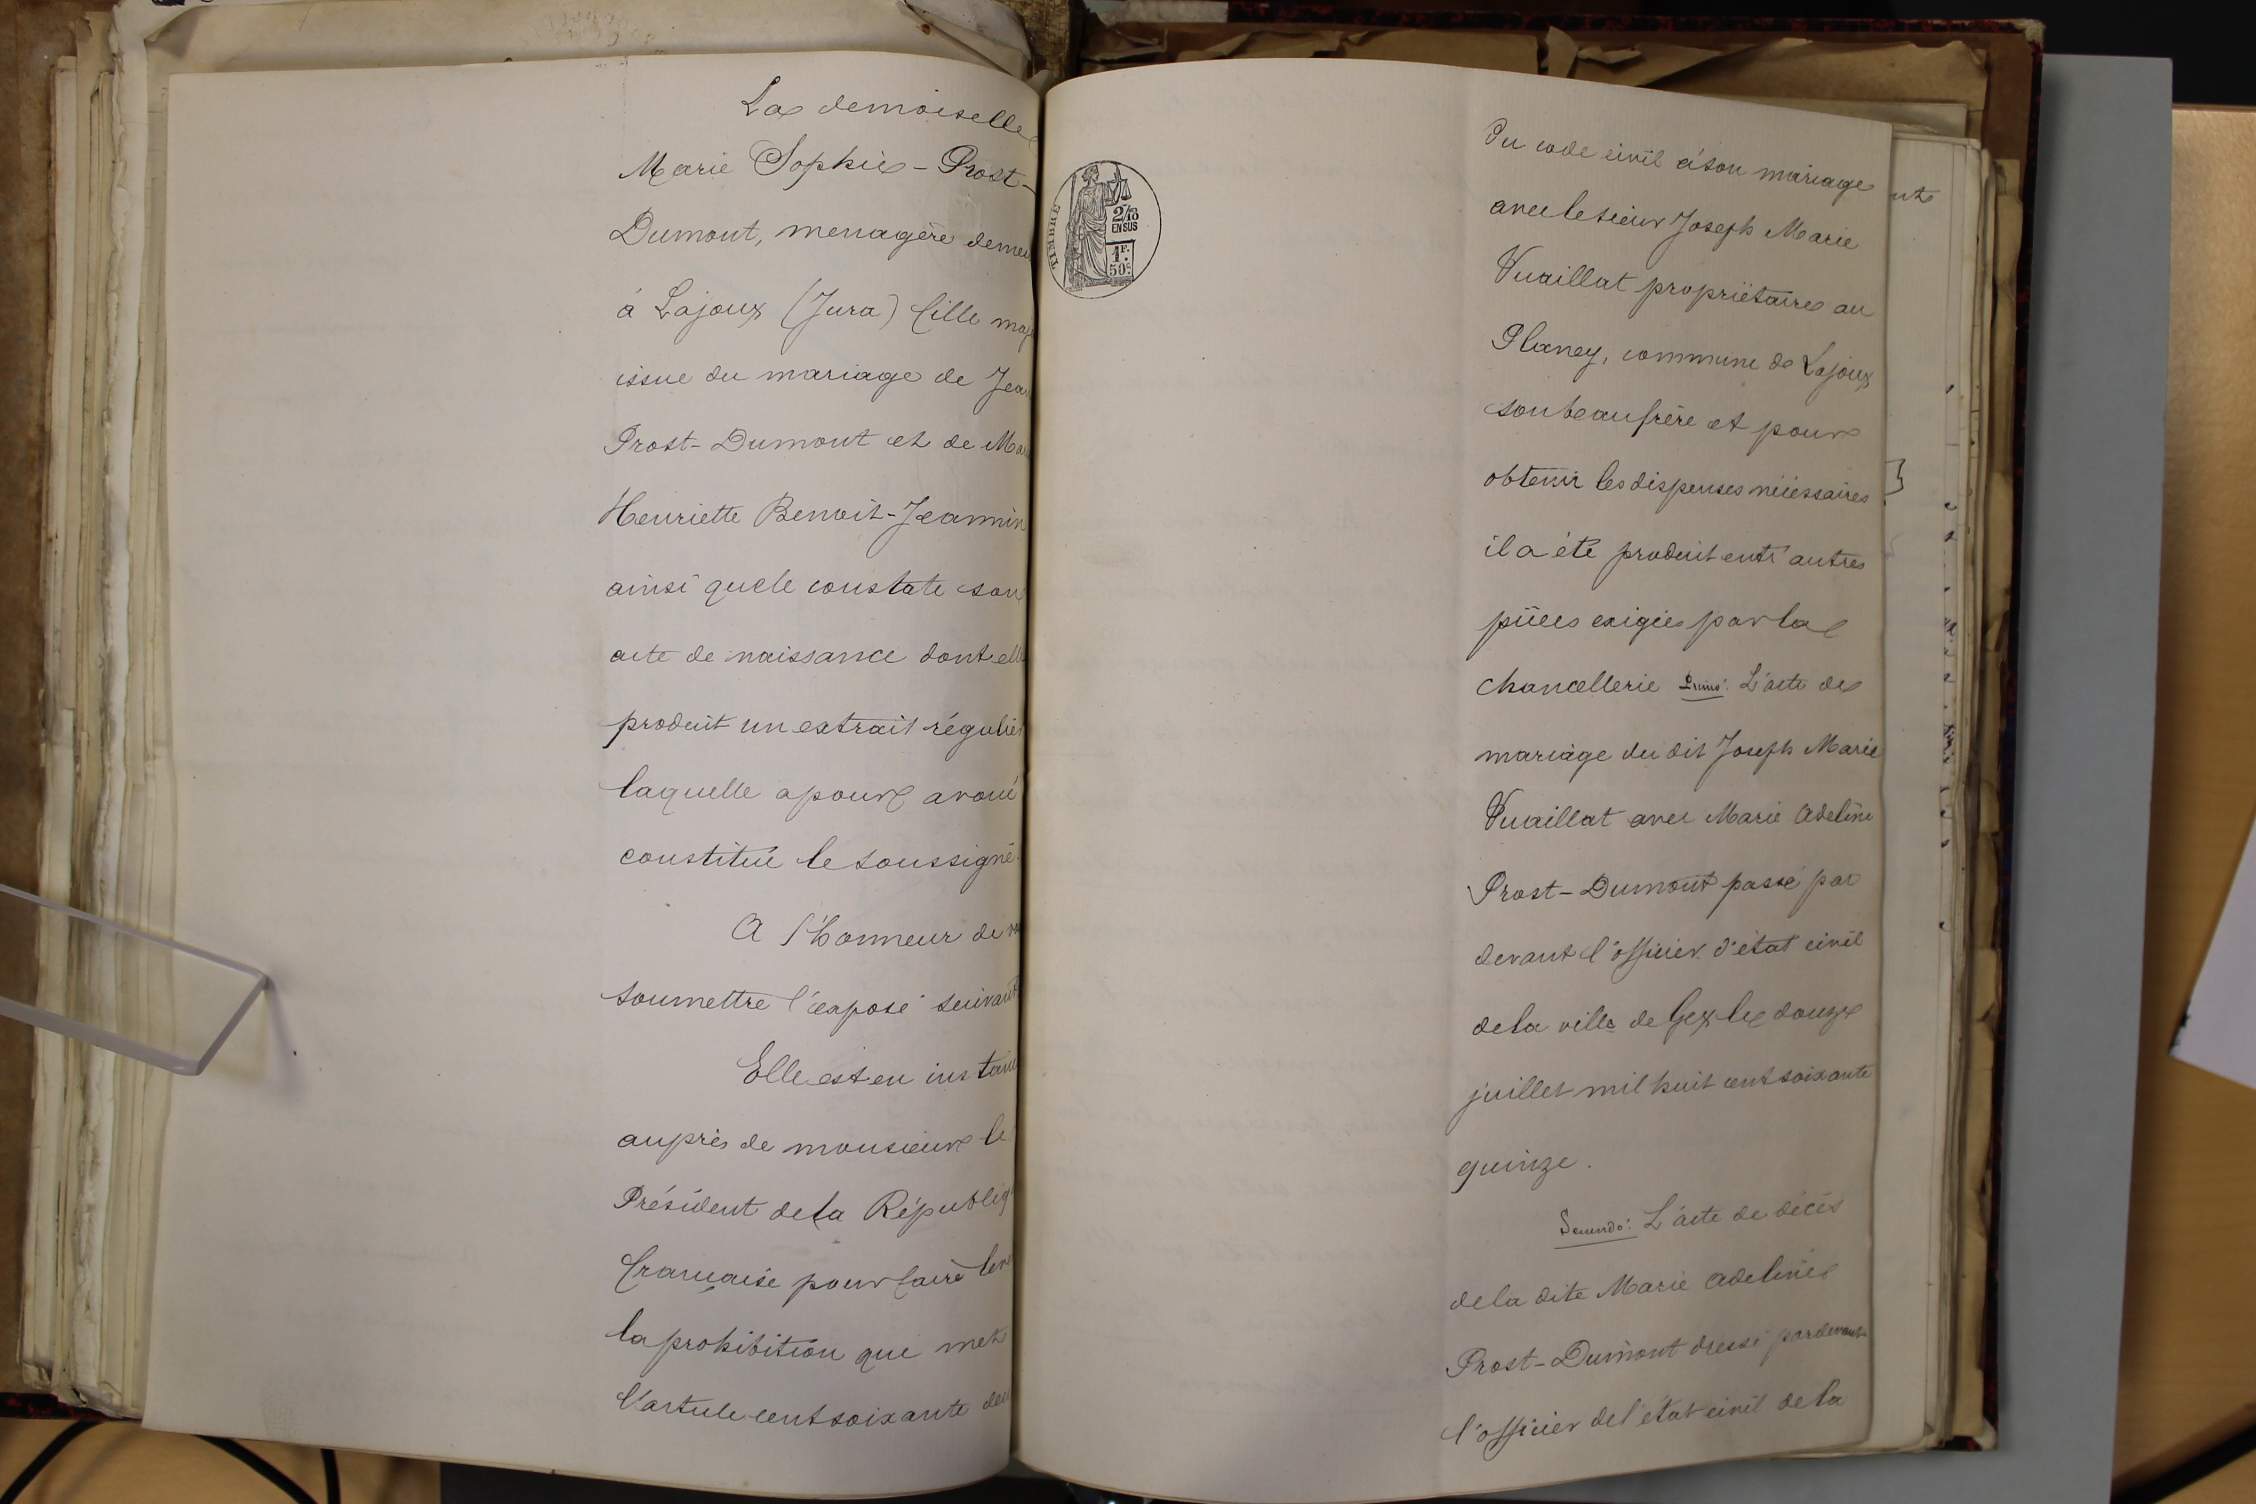 La demoiselle
Marie Sophie - Prost-
Dumont, menagère demeu
à Lajoux (Jura) fille maj
issue du mariage de Jea
Prost-Dumont et de Ma
Henriette Benoit-Jeannin
ainsi que le constate son
acte de naissance dont elle
produit un extrait régulier
laquelle a pour avoué
constitué le soussigné.
A l'honneur de
soumettre l'exposé suivant
Elle est en instan
auprès de monsieur le
Président de la Républiq
française pour faire lev
la prohibition que met
l'article cent soixante deu
TIMBRE
2/10
EN SUS
1F.
50c.
Du code civil à son mariage
avec le sieur Joseph Marie
Vuaillat propriétaire au
Planey, commune de Lajoux
son beau frère et pour
obtenir les dispenses nécessaires
il a été produit entr'autres
pièces exigées par la
chancellerie Primo: L'acte de
mariage du dit Joseph Marie
Vuaillat avec Marie Adeline
Prost-Dumont passé par
devant l'officier d'état civil
de la ville de Gex le douze
juillet mil huit cent soixante
quinze.
Secundo: L'acte de décès
de la dite Marie Adeline
Prost-Dumont dressé pardevant
l'officier de l'état civil de la